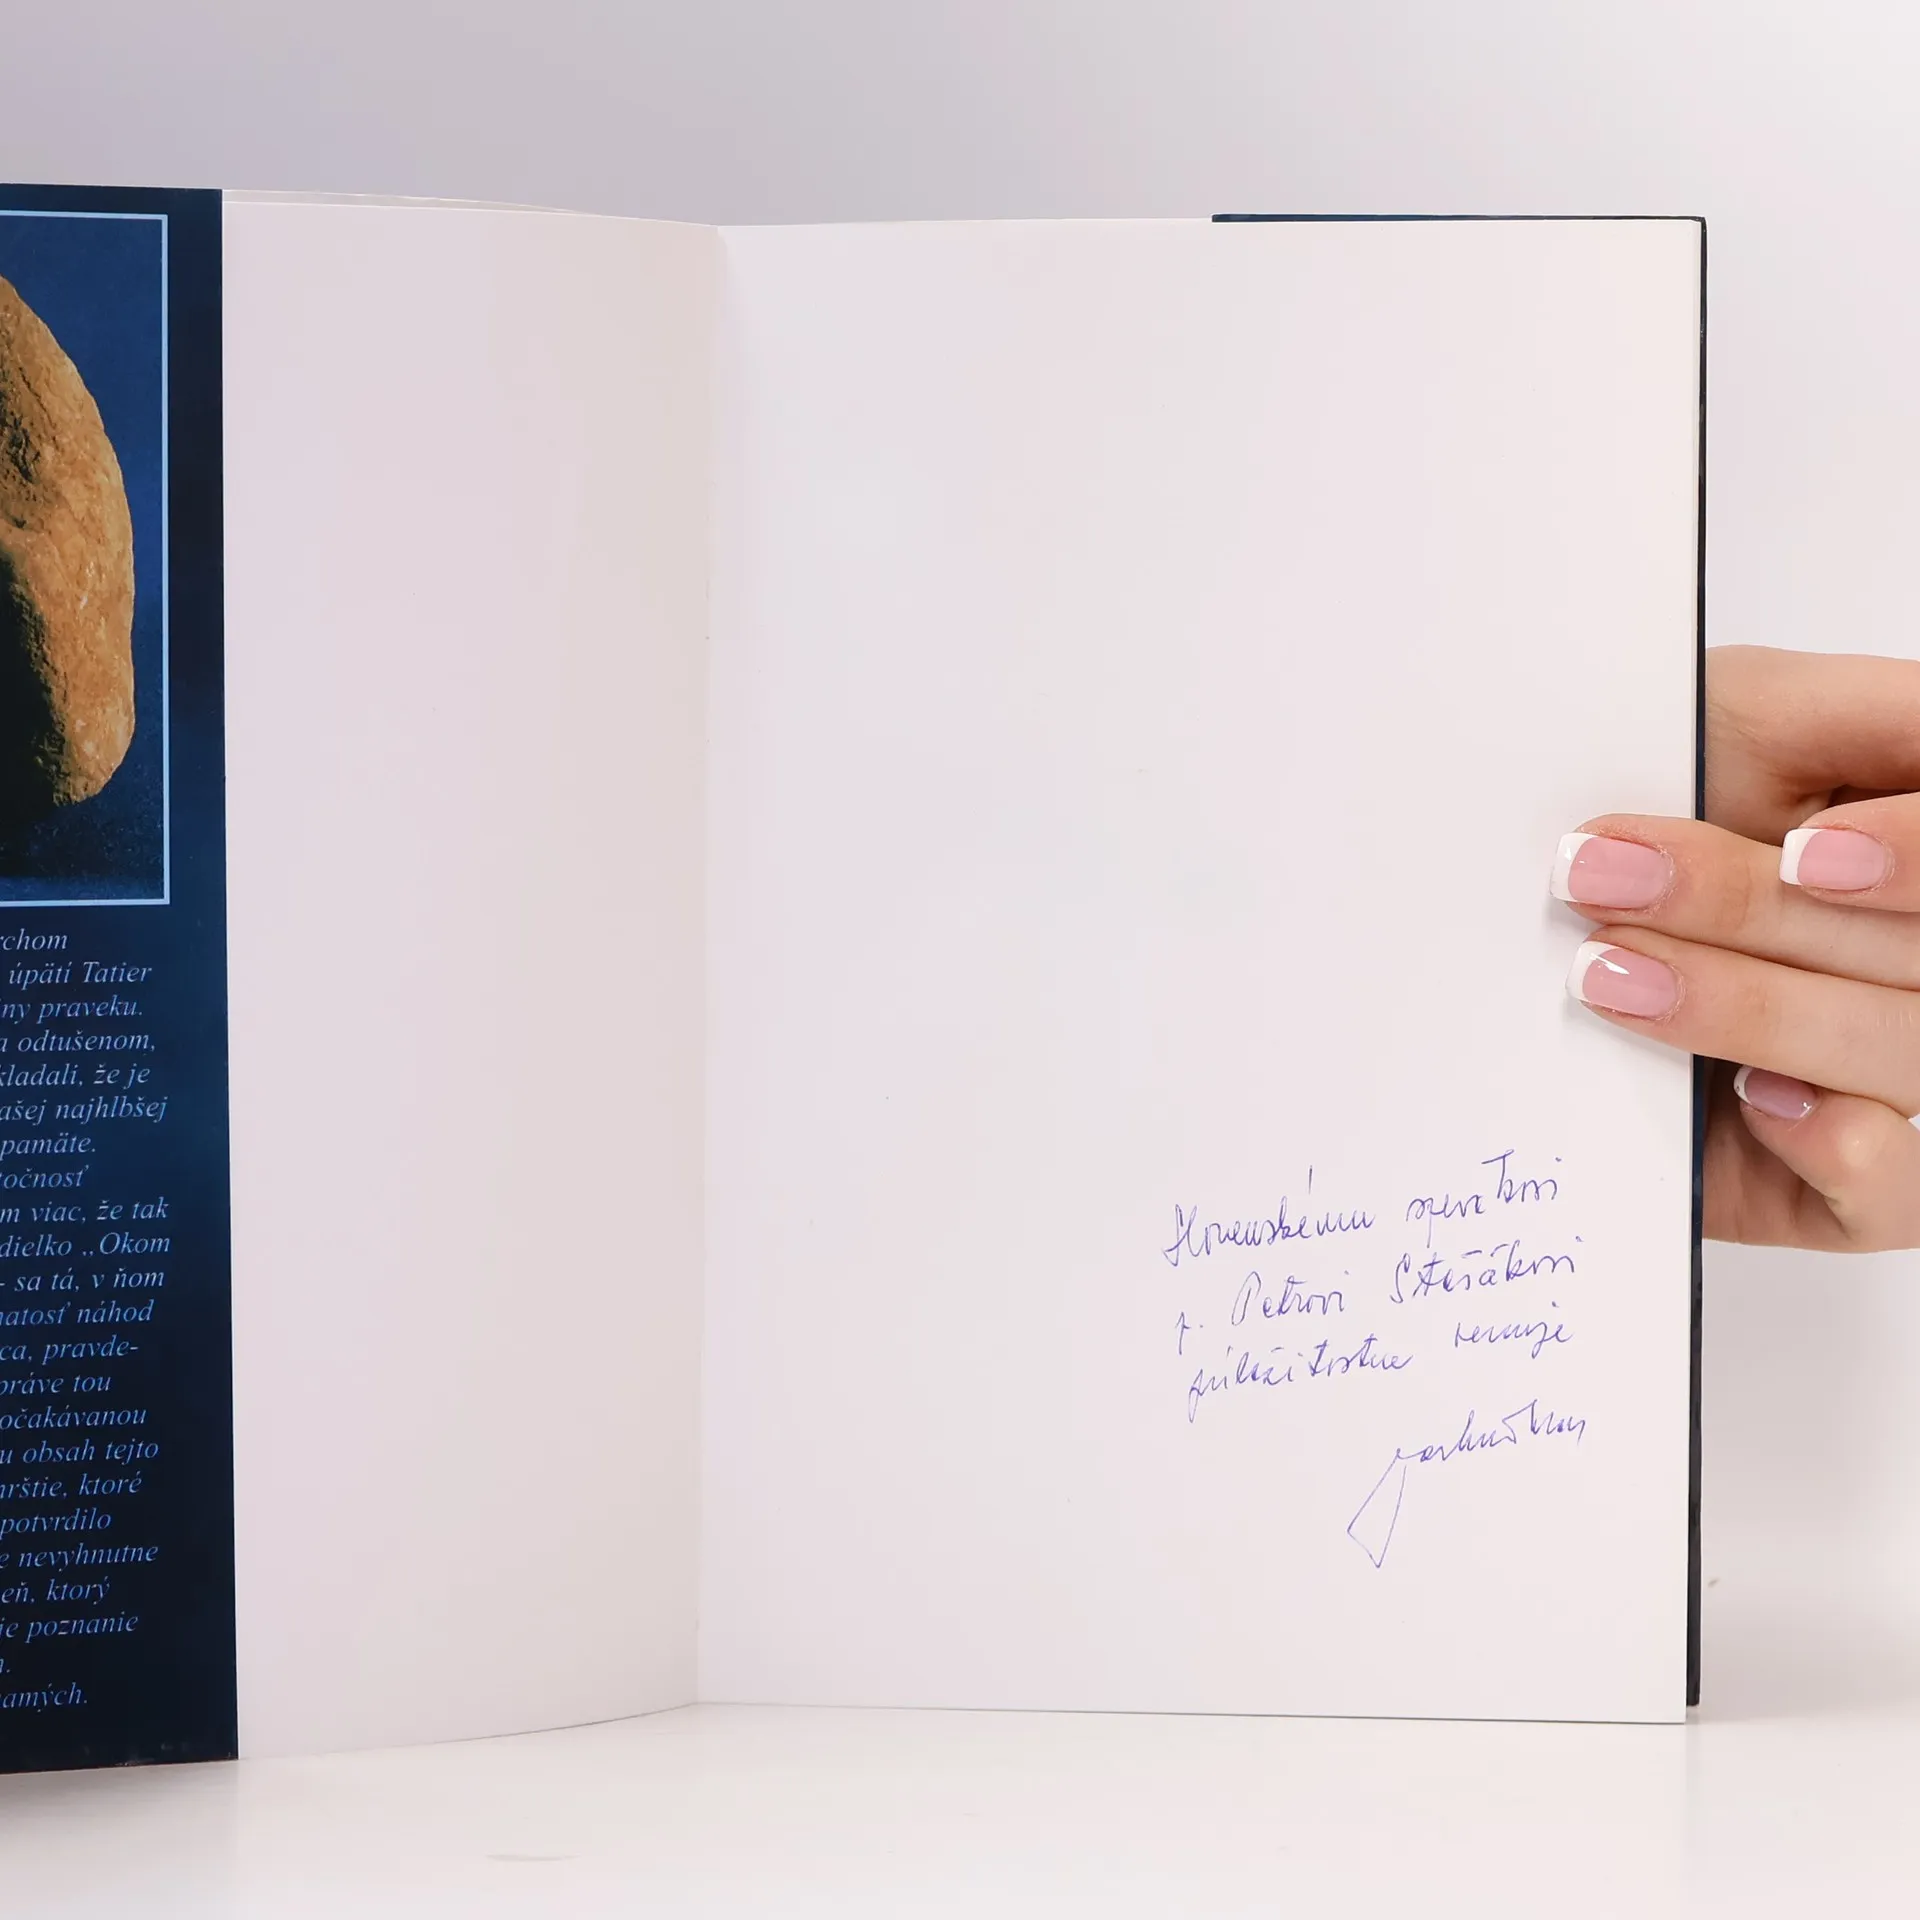 rchom
úpätí Tatier
iny praveku.
a odtušenom,
kladali, že je
ašej najhlbšej
pamäte.
točnosť
m viac, že tak
dielko „Okom
- sa tá, v ňom
natosť náhod
ca, pravde-
práve tou
očakávanou
u obsah tejto
hrštie, ktoré
potvrdilo
e nevyhnutne
eň, ktorý
je poznanie
amých.
Slovenskému spevákovi
p. Petrovi Stašákovi
príležitostne venuje